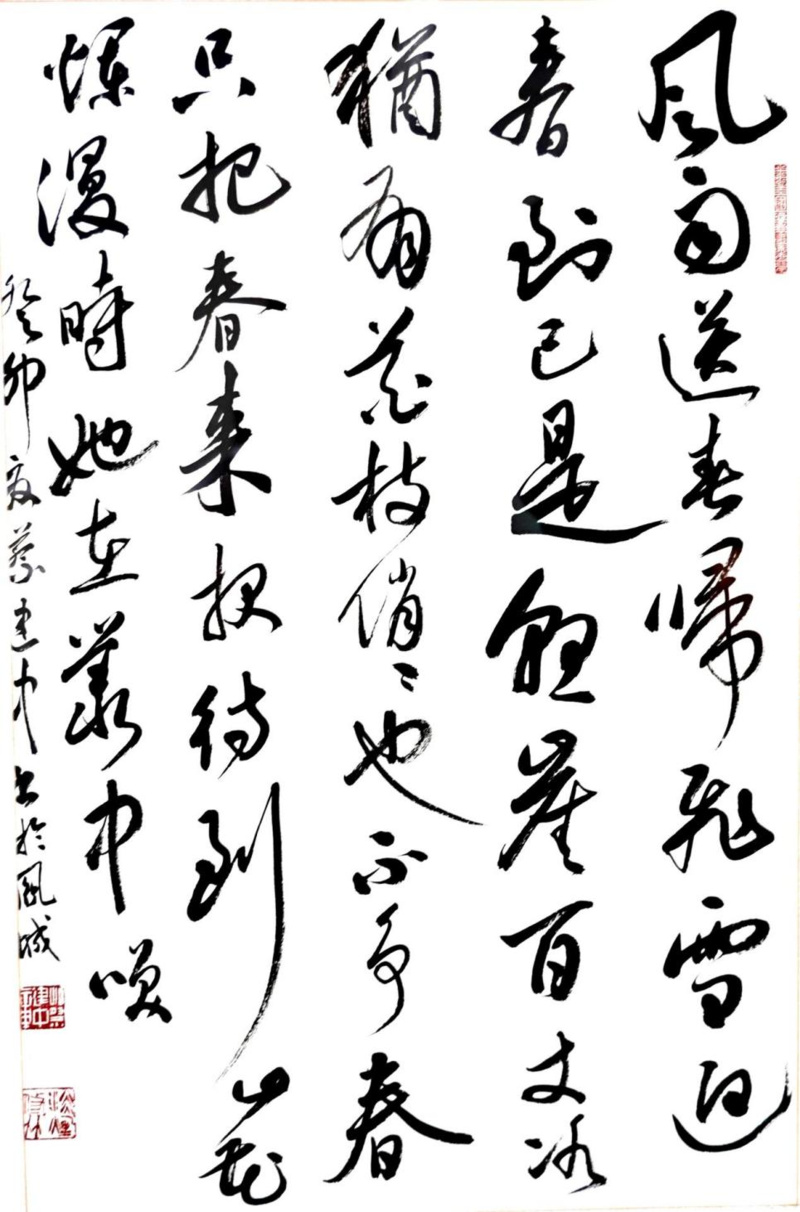 风雨送春帰飛雪迎
春到已是懸崖百丈冰
猶有花枝俏〻也不争春
只把春来报待到山花
爛漫時她在叢中咲
癸卯夏蔡建中书於鳳城